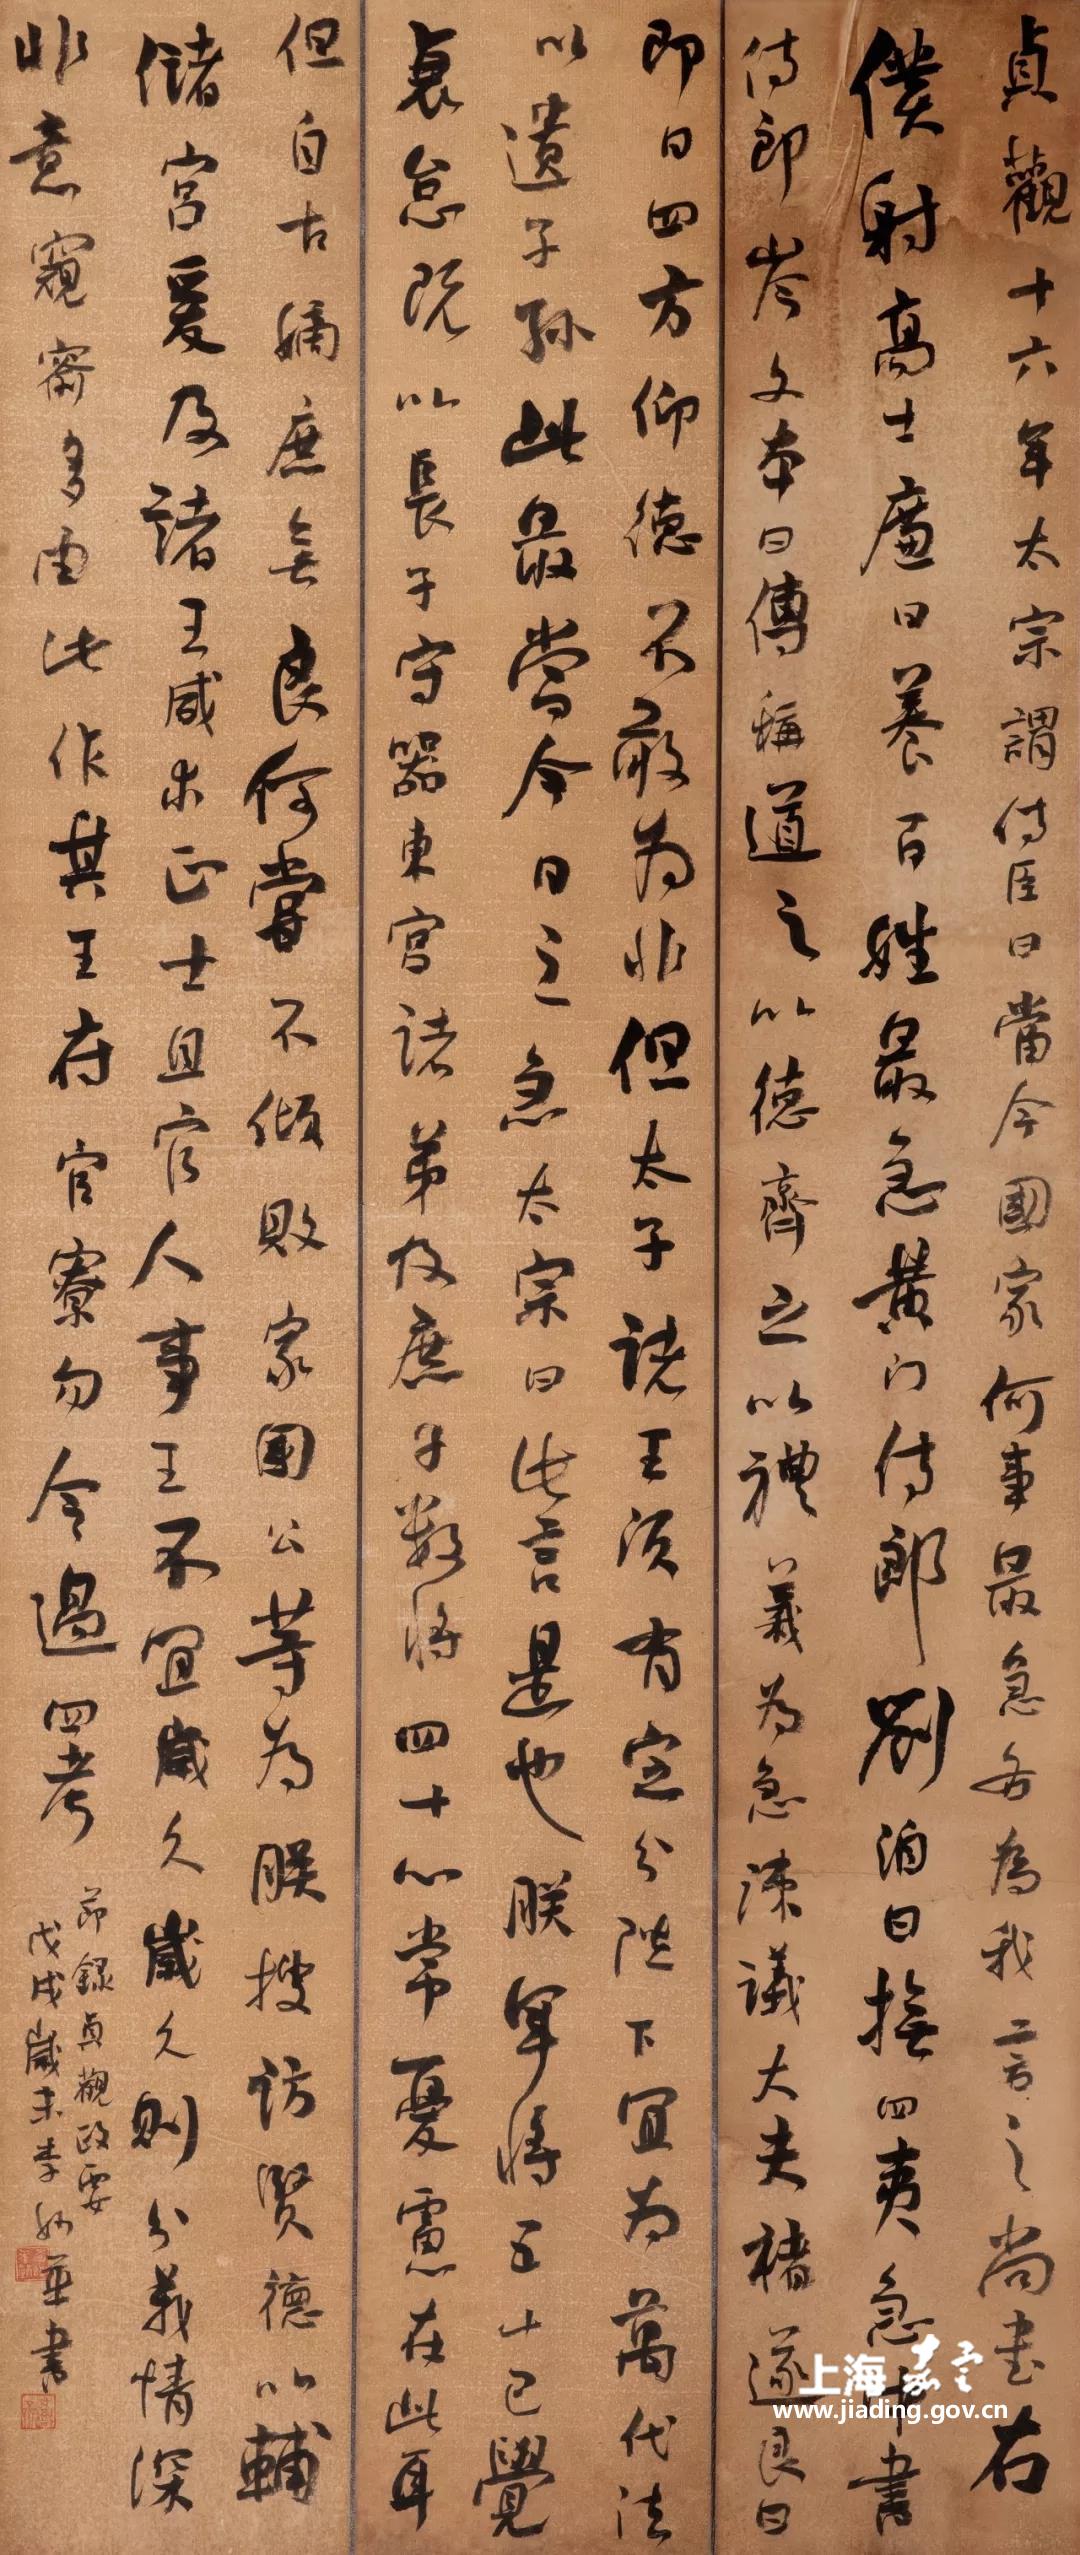 貞觀十六年太宗謂侍臣曰當今國家何事最急各為我言之尚書右
僕射高士廉曰養百姓最急黄門侍郎劉洎曰撫四夷急中書
侍郎岑文本曰傳稱道之以德齊之以禮義為急諫議大夫褚遂良曰
即日四方仰德不敢为非但太子諸王須有定分陛下宜为萬代法
以遺子孫此最當今日之急太宗曰此言是也朕年將五十已覺
衰怠既以長子守器東宮諸弟及庶子数將四十心常憂慮在此耳
但自古嫡庶無良何嘗不傾敗家國公等为朕搜訪賢德以輔
儲宮爰及諸王咸求正士且官人事王不宜歲久歲久則分義情深
非意窺窬多由此作其王府官寮勿令過四考
節錄貞觀政要
戊戌歲末李 華書
上海嘉定
www.jiading.gov.cn